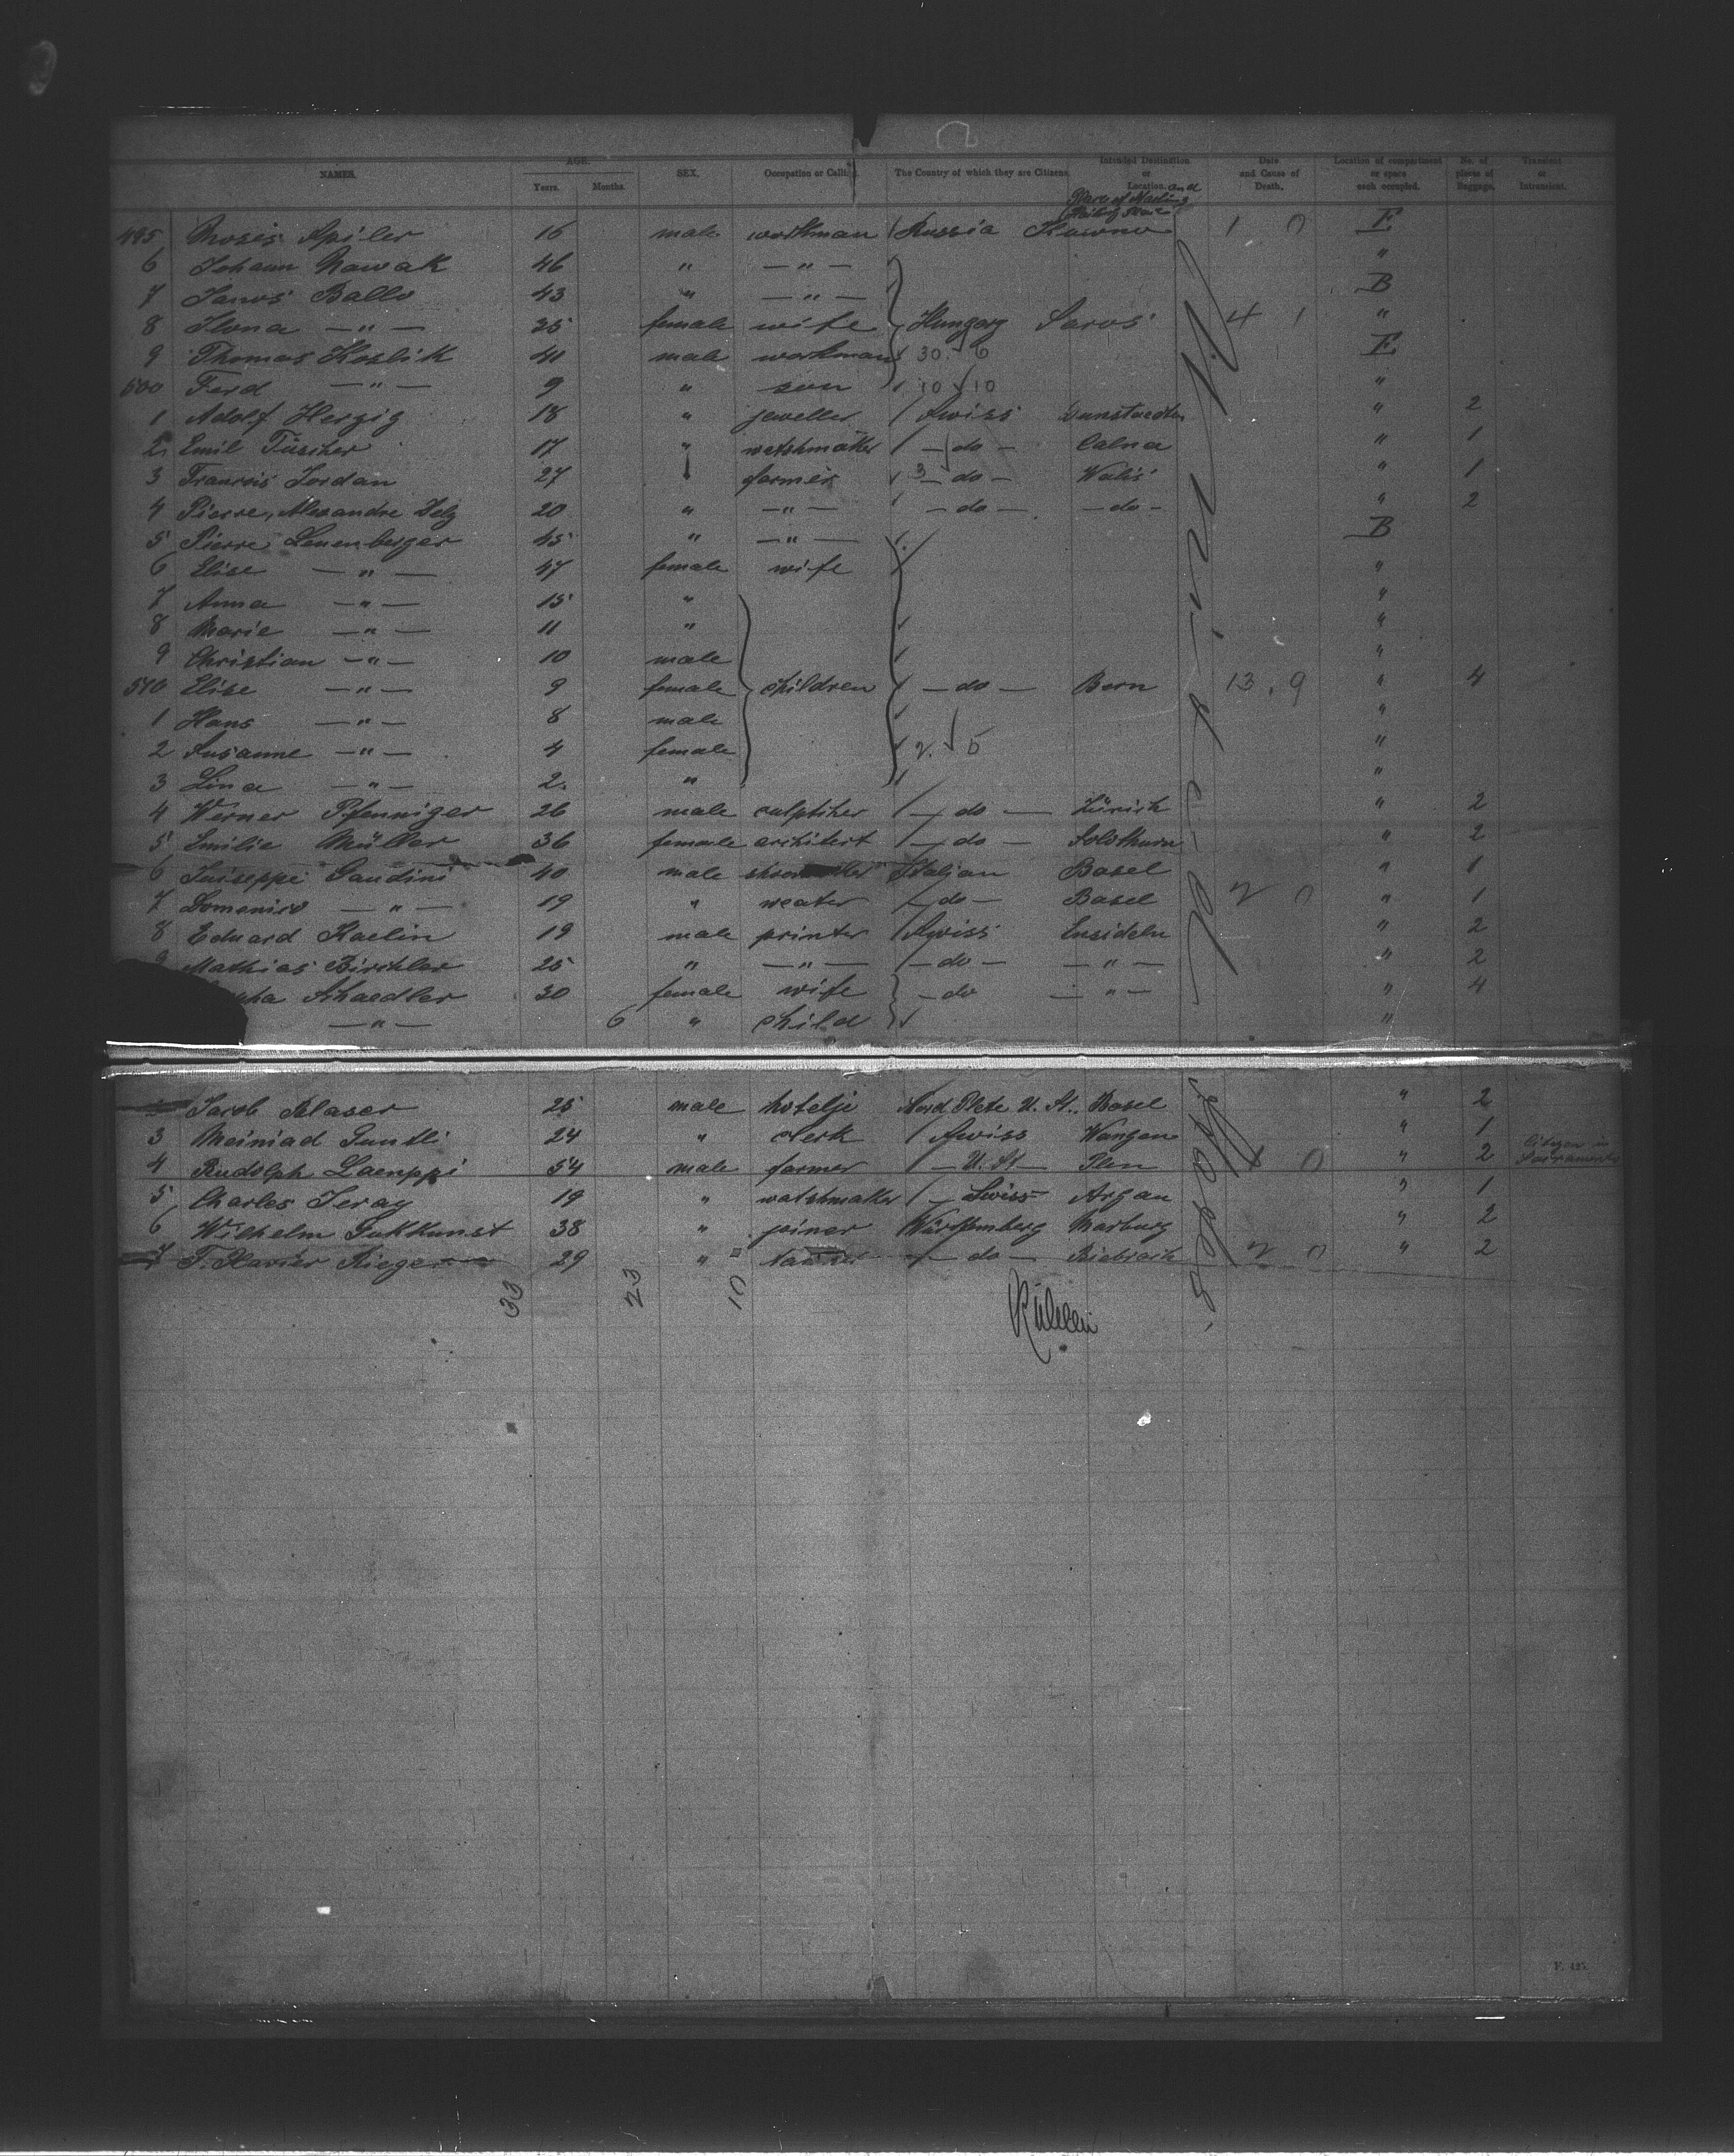 NAMES. AGE. Years. Months. SEX. Occupation or Calling. The Country of which they are Citizens. Intended Destination or Location. and Date and Cause of Death. Location of compartment or space each occupied. No. of pieces of Baggage. Transient or Intransient.
495 Mosis Spiler 16 male workman Russia Kowno 1 0 E
6 Johann Nowak 46 " — " — "
7 Janos Ballo 43 " — " — B
8 Ilona — " — 25 female wife Hungary Saros 4 1 "
9 Thomas Koslik 41 male workman 30 6 E
500 Ferd — " — 9 " son 10 10 "
1 Adolf Herzig 18 " jeweller Swiss "  2
2 Emil Tüscher 17 " watshmaker — do — Calna " 1
3 Francois Jordan 27 farmer 3 — do — Walis " 1
4 Pierre, Alexandre 20 " — " — — do — — do — " 2
5 Pierre Leuenberger 45 " — " — B
6 Elise — " — 47 female wife "
7 Anna — " — 15 " "
8 Marie — " — 11 " "
9 Christian — " — 10 male "
510 Elise — " — 9 female children — do — Bern 13. 9 " 4
1 Hans — " — 8 male "
2 Susanne — " — 4 female 2. 5 "
3 Lina — " — 2 " "
4 Werner Pfenniger 26 male sculptiher — do — Zürich " 2
5 Emilie Müller 36 female architect — do — Solothurn " 2
6 Juiseppi Gaudini 40 male Italian Basel " 1
7 Domenico — " — 19 " — do — Basel 2 0 " 1
8 Eduard Kaelin 19 male printer Swiss Ensideln " 2
Mathias Birchler 25 " — " — — do — — " — " 2
Schaedler 30 female wife — do — " — " 4
— " — 6 " child "
Jacob Blaser 25 male hotelje Nord Plete U. St. Basel " 2
3 Meinrad Guntli 24 " clerk Swiss Wangen " 1
4 Rudolph Laenppi 54 male farmer — U. St — Plen 0 " 2 Citizen in Sacramento
5 Charles Jeray 19 " watshmaker — Swiss Argau " 1
6 Wilhelm Gukkunst 38 " joiner Würtemberg Marburg " 2
7 F. Xavier Rieger 29 " — do — Biebrach 2 0 " 2
33 23 10
F. 425.